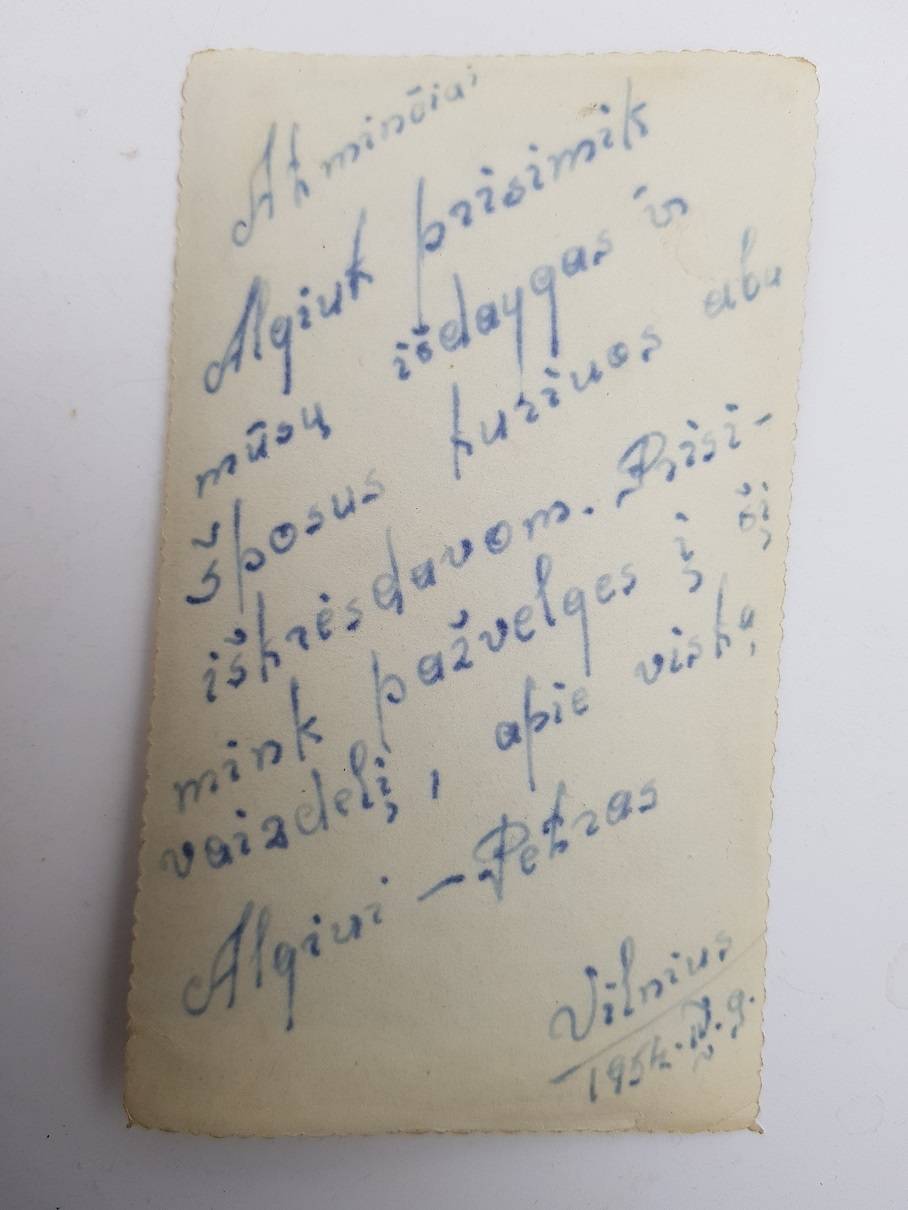 Atminčiai
Algiuk prisimik
mūsų išdaygas ir
šposus kuriuos abu
iškrėsdavom. Prisi-
mink pažvelges į šį
vaizdelį, apie viską
Algiui — Petras
Vilnius
1954.IV.9.